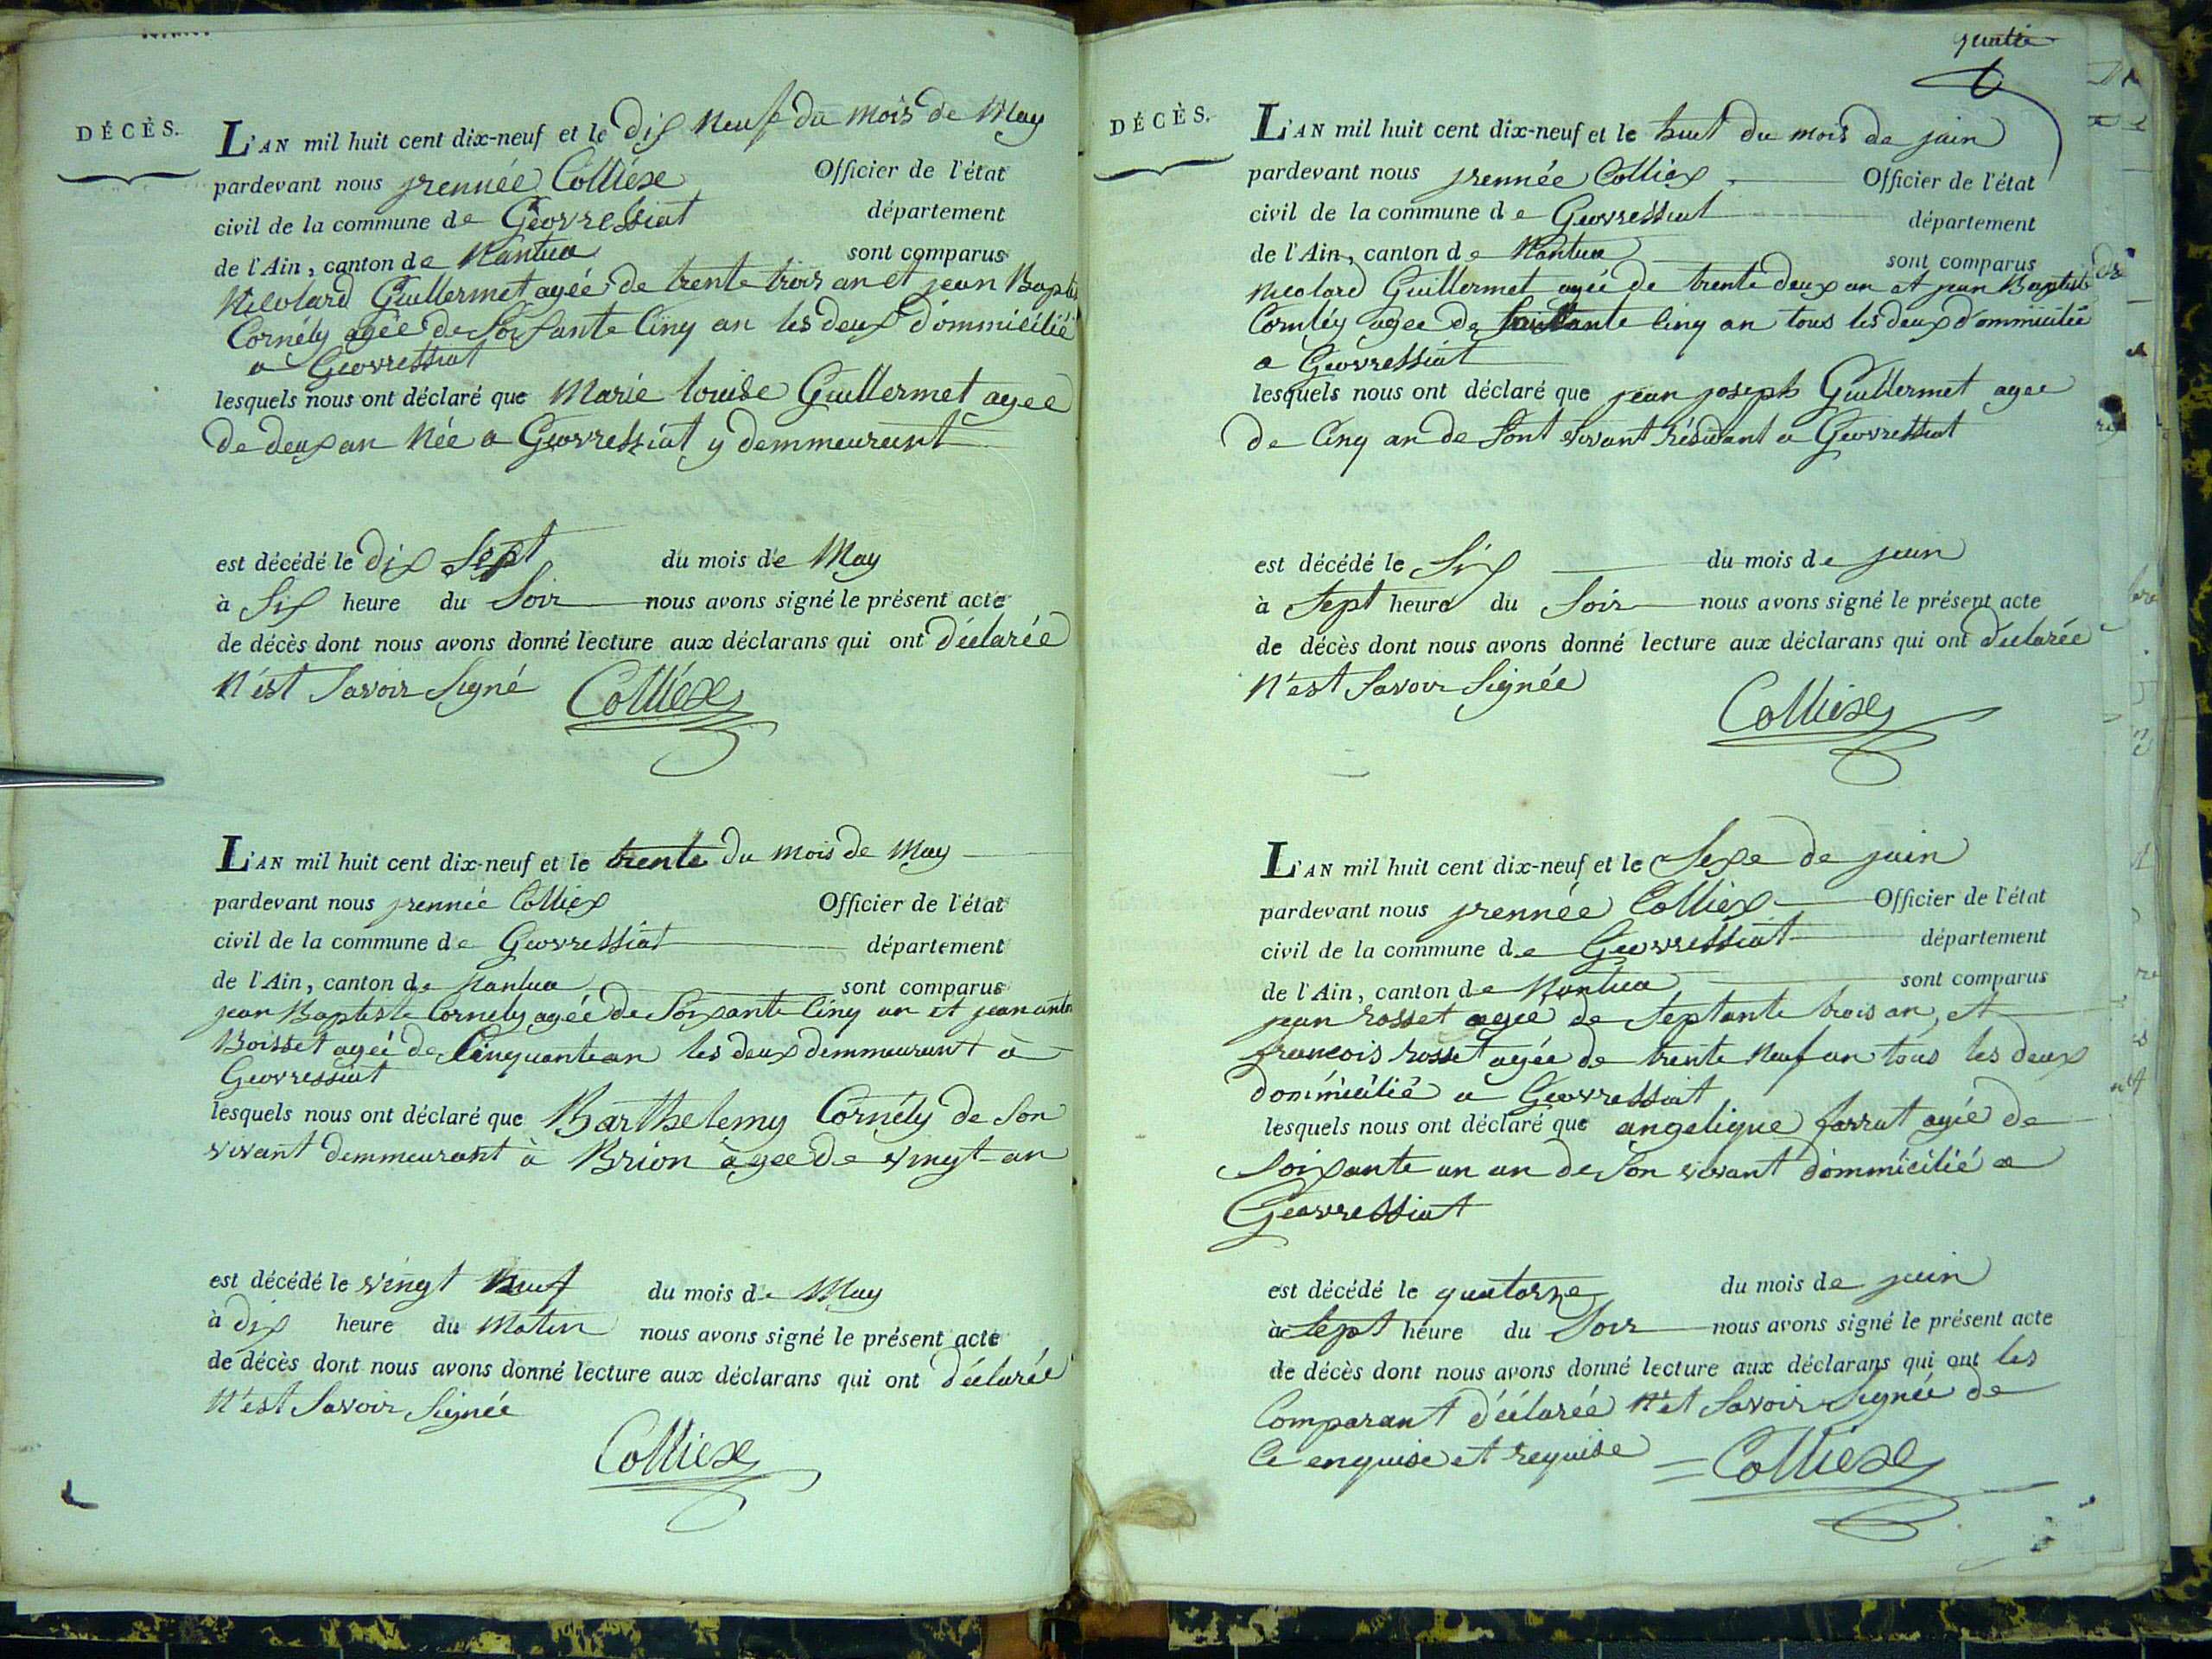 DÉCÈS.
L'AN mil huit cent dix-neuf et le dix neuf du mois de May
pardevant nous jrennée Colliex Officier de l'état
civil de la commune de Geovressiat département
de l'Ain, canton de Nantua sont comparus
Nicolard Guillermet agée de trente trois an et jean Baptis
Cornély agée de Soixante Cinq an les deux dommicilié
a Geovressiat
lesquels nous ont déclaré que Marie louise Guillermet agee
de deux an Née a Geovressiat y demmeurant
est décédé le dix Sept du mois de May
à Six heure du Soir nous avons signé le présent acte
de décès dont nous avons donné lecture aux déclarans qui ont déclarée
N'est Savoir Signé Colliex
L'AN mil huit cent dix-neuf et le trente du mois de May
pardevant nous jrennée Colliex Officier de l'état
civil de la commune de Geovressiat département
de l'Ain, canton de Nantua sont comparus
jean Baptiste Cornely agée de Soixante Cinq an et jean antoi
Boisset agée de Cinquante an les deux demmeurant à
Geovressiat
lesquels nous ont déclaré que Barthelemy Cornély de Son
vivant demmeurant à Brion àgee de vingt an
est décédé le vingt Neuf du mois de May
à dix heure du Matin nous avons signé le présent acte
de décès dont nous avons donné lecture aux déclarans qui ont déclarée
N'est Savoir Signée
Colliex
DÉCÈS.
L'AN mil huit cent dix-neuf et le huit du mois de juin
pardevant nous jrennée Colliex Officier de l'état
civil de la commune de Geovressiat département
de l'Ain, canton de Nantua sont comparus
Nicolard Guillermet agée de trente deux an et jean Baptiste
Cornley agee de Soixante Cinq an tous les deux dommicilié
a Geovressiat
lesquels nous ont déclaré que jean joseph Guillermet agee
de Cinq an de Sont vivant résidant a Geovressiat
est décédé le Six du mois de juin
à Sept heure du Soir nous avons signé le présent acte
de décès dont nous avons donné lecture aux déclarans qui ont déclarée
N'est Savoir Signée
Colliex
L'AN mil huit cent dix-neuf et le Sexe de juin
pardevant nous jrennée Colliex Officier de l'état
civil de la commune de Geovressiat département
de l'Ain, canton de Nantua sont comparus
jean rosset agee de Septante trois an, et
francois rosset agée de trente Neuf an tous les deux
dommicilié a Geovressiat
lesquels nous ont déclaré que angelique farrat agée de
Soixante un an de Son vivant dommicilié a
Geovressiat
est décédé le quatorze du mois de juin
à Sept heure du Soir nous avons signé le présent acte
de décès dont nous avons donné lecture aux déclarans qui ont les
Comparant déclarée N'et Savoir Signée de
Ce enquise et requise = Colliex